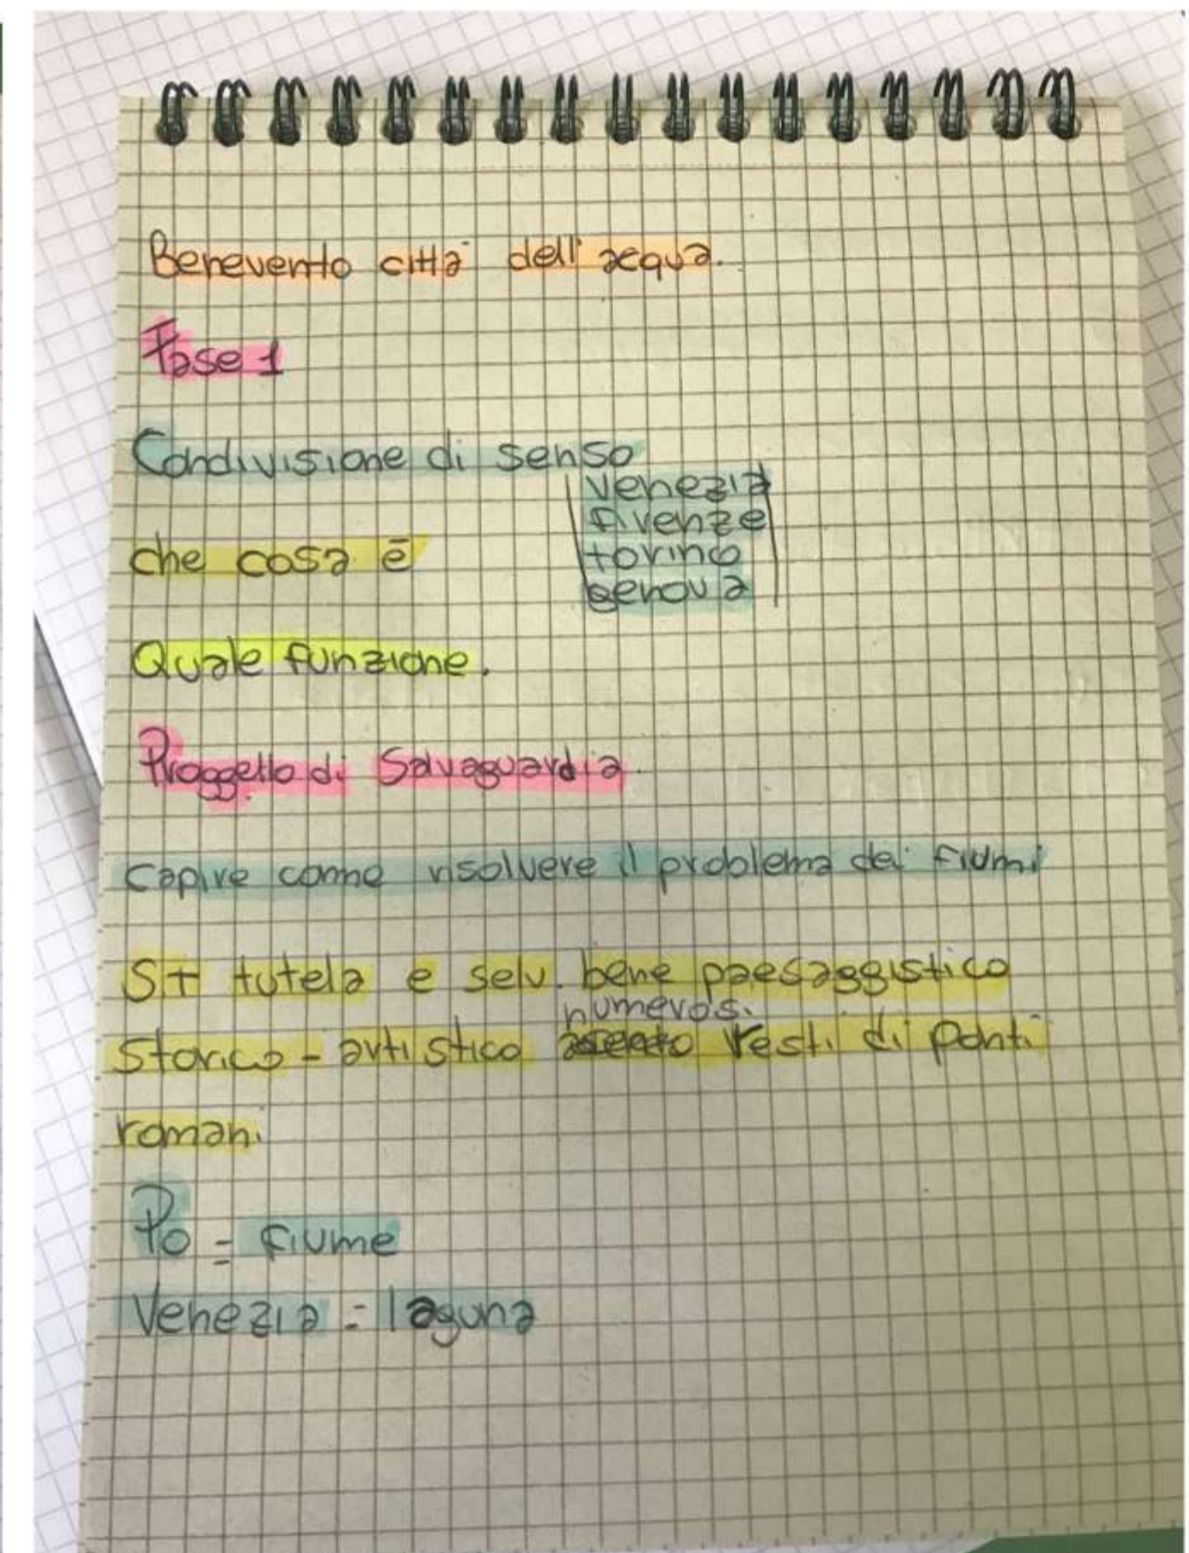 Benevento città dell'acqua.
Fase 1
Condivisione di senso
venezia
firenze
torino
genova
che cosa è
Quale funzione.
Proggetto di Salvaguardia
Capire come risolvere il problema dei fiumi
St tutela e selv. bene paesaggistico
numeros.
Storico - artistico resti di ponti
romani
Po = fiume
Venezia = laguna